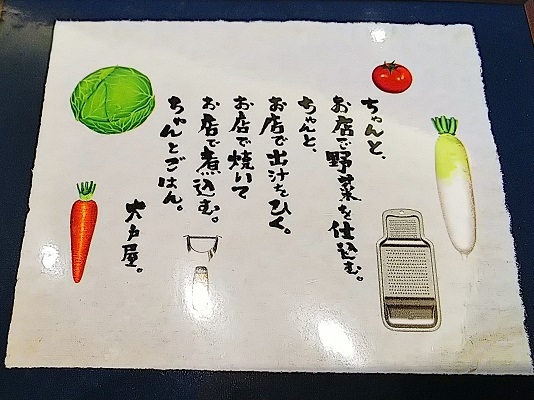 ちゃんと、
お店で野菜を仕込む。
ちゃんと、
お店で出汁をひく。
お店で焼いて
お店で煮込む。
ちゃんとごはん。
大戸屋。